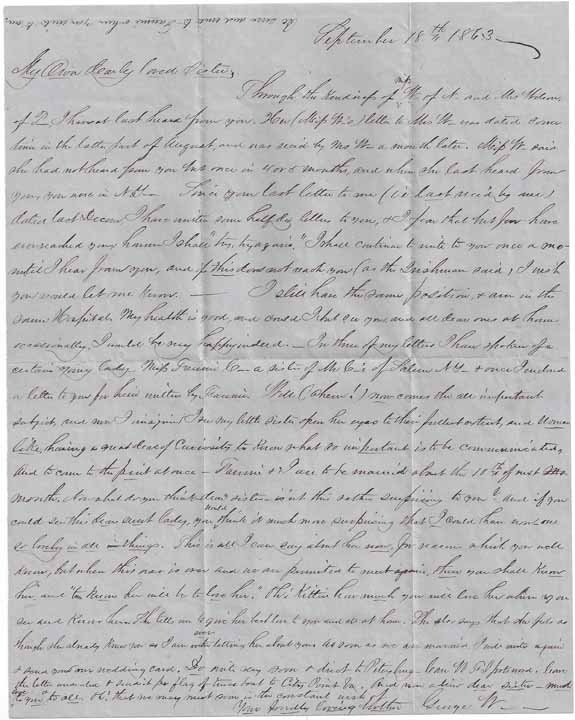 September 18th 1863
My Own dearly loved Sister,
Through the kindness of Miss W. of N. and Mrs
of P. I have at last heard from you. Her (Miss W's) letter to Mrs W was dated some
time in the latter part of August, and was recd by Mrs W a month later. Miss W. said
she had not heard from you but once in 4 or 5 months, and when she last heard from
you, you were in N.Y. Since your last letter to me (i.e. last rec'd by me)
dated last Decem, I have written some half doz letters to you, & I fear that but few have
ever reached you; however I shall "try, try again." I shall continue to write to you once a mo
until I hear from you, and if this does not reach you (as the Irishman said) I wish
you would let me know. — I still have the same position, & am in the
same Hospital. My health is good, and could I but see you and all dear ones at home
occasionally, I would be very happy indeed. — In three of my letters I have spoken of a
certain young lady Miss Fannie C— a sister of Mr of Salem N.Y. & once I enclosed
a letter to you for her written by Fannie. Well (Ahem!) now comes the all important
subject, and now I imagine I see my little sister open her eyes to their fullest extent, and Woman
like, having a great deal of Curiosity to know what so important is to be communicated,
and to come to the point at once — Fannie & I are to be married about the 10th of next
month. Now what do you think dear sister, is it this rather surprising to you? and if you
could see this dear sweet lady, you would think it much more surprising that I could have won one
so lovely in all things. This is all I can say about her now, for reasons which you well
know, but when this war is over and we are permitted to meet again, then you shall know
her, and "to know her will be to love her." Oh! Kittie how much you will love her when you
see and know her. She tells me to give her best love to you and all at home. She also says that she feels as
though she already knew you as I am ever telling her about you. As soon as we are married I will write again
& send you our wedding card. Do write very soon & direct to Petersburg
the letter unsealed & sent it per flag of truce boat to City Point Va. And now a
to all. Oh! that we may meet soon is the constant wish of
Your fondly loving brother George W.